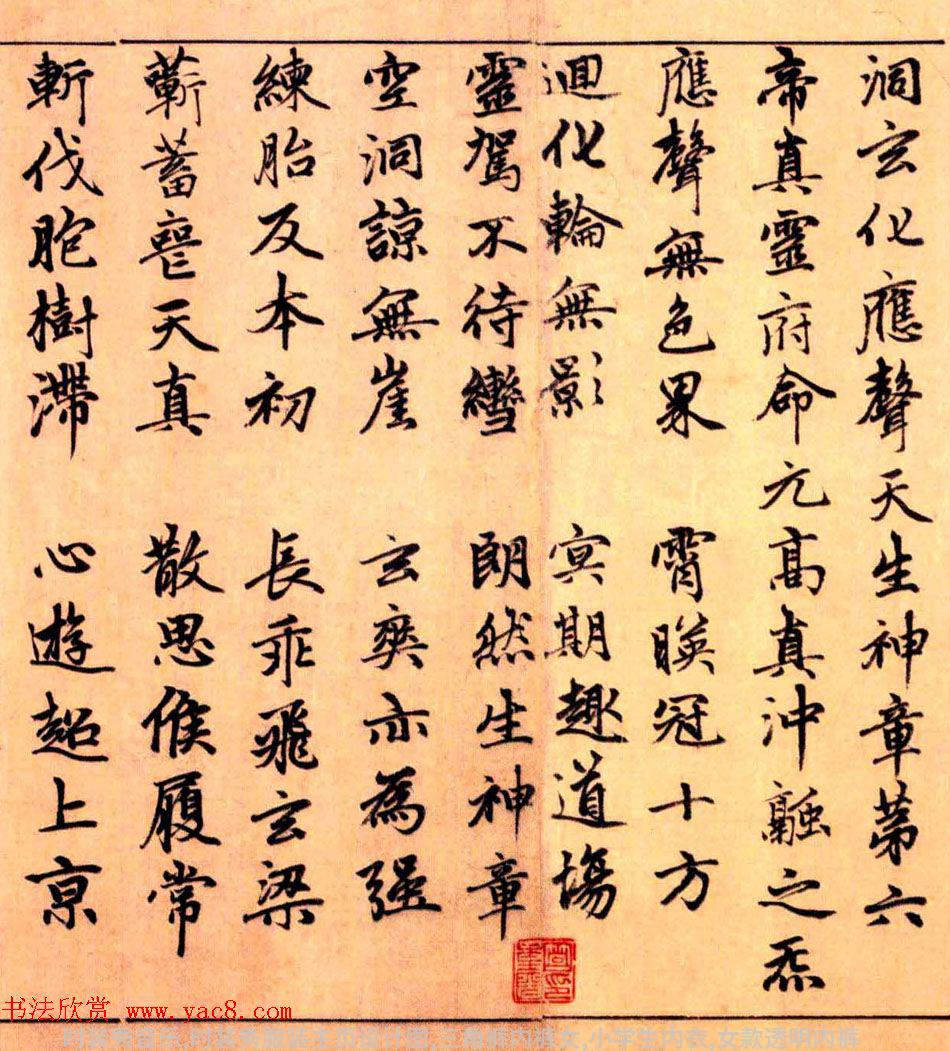 洞玄化應聲天生神章苐六
帝真靈府命元髙真沖融之炁
應聲無色界 霄暎冠十方
迴化輪無影 冥期趣道場
靈駕不待轡 朗然生神章
空洞諒無崖 玄爽亦為强
練胎反本初 長乖飛玄梁
蘄蓄喪天真 散思候履常
斬伐胞樹滯 心遊超上亰
书法欣赏 www.yac8.com
内裤女,小学生内衣,女款透明内裤